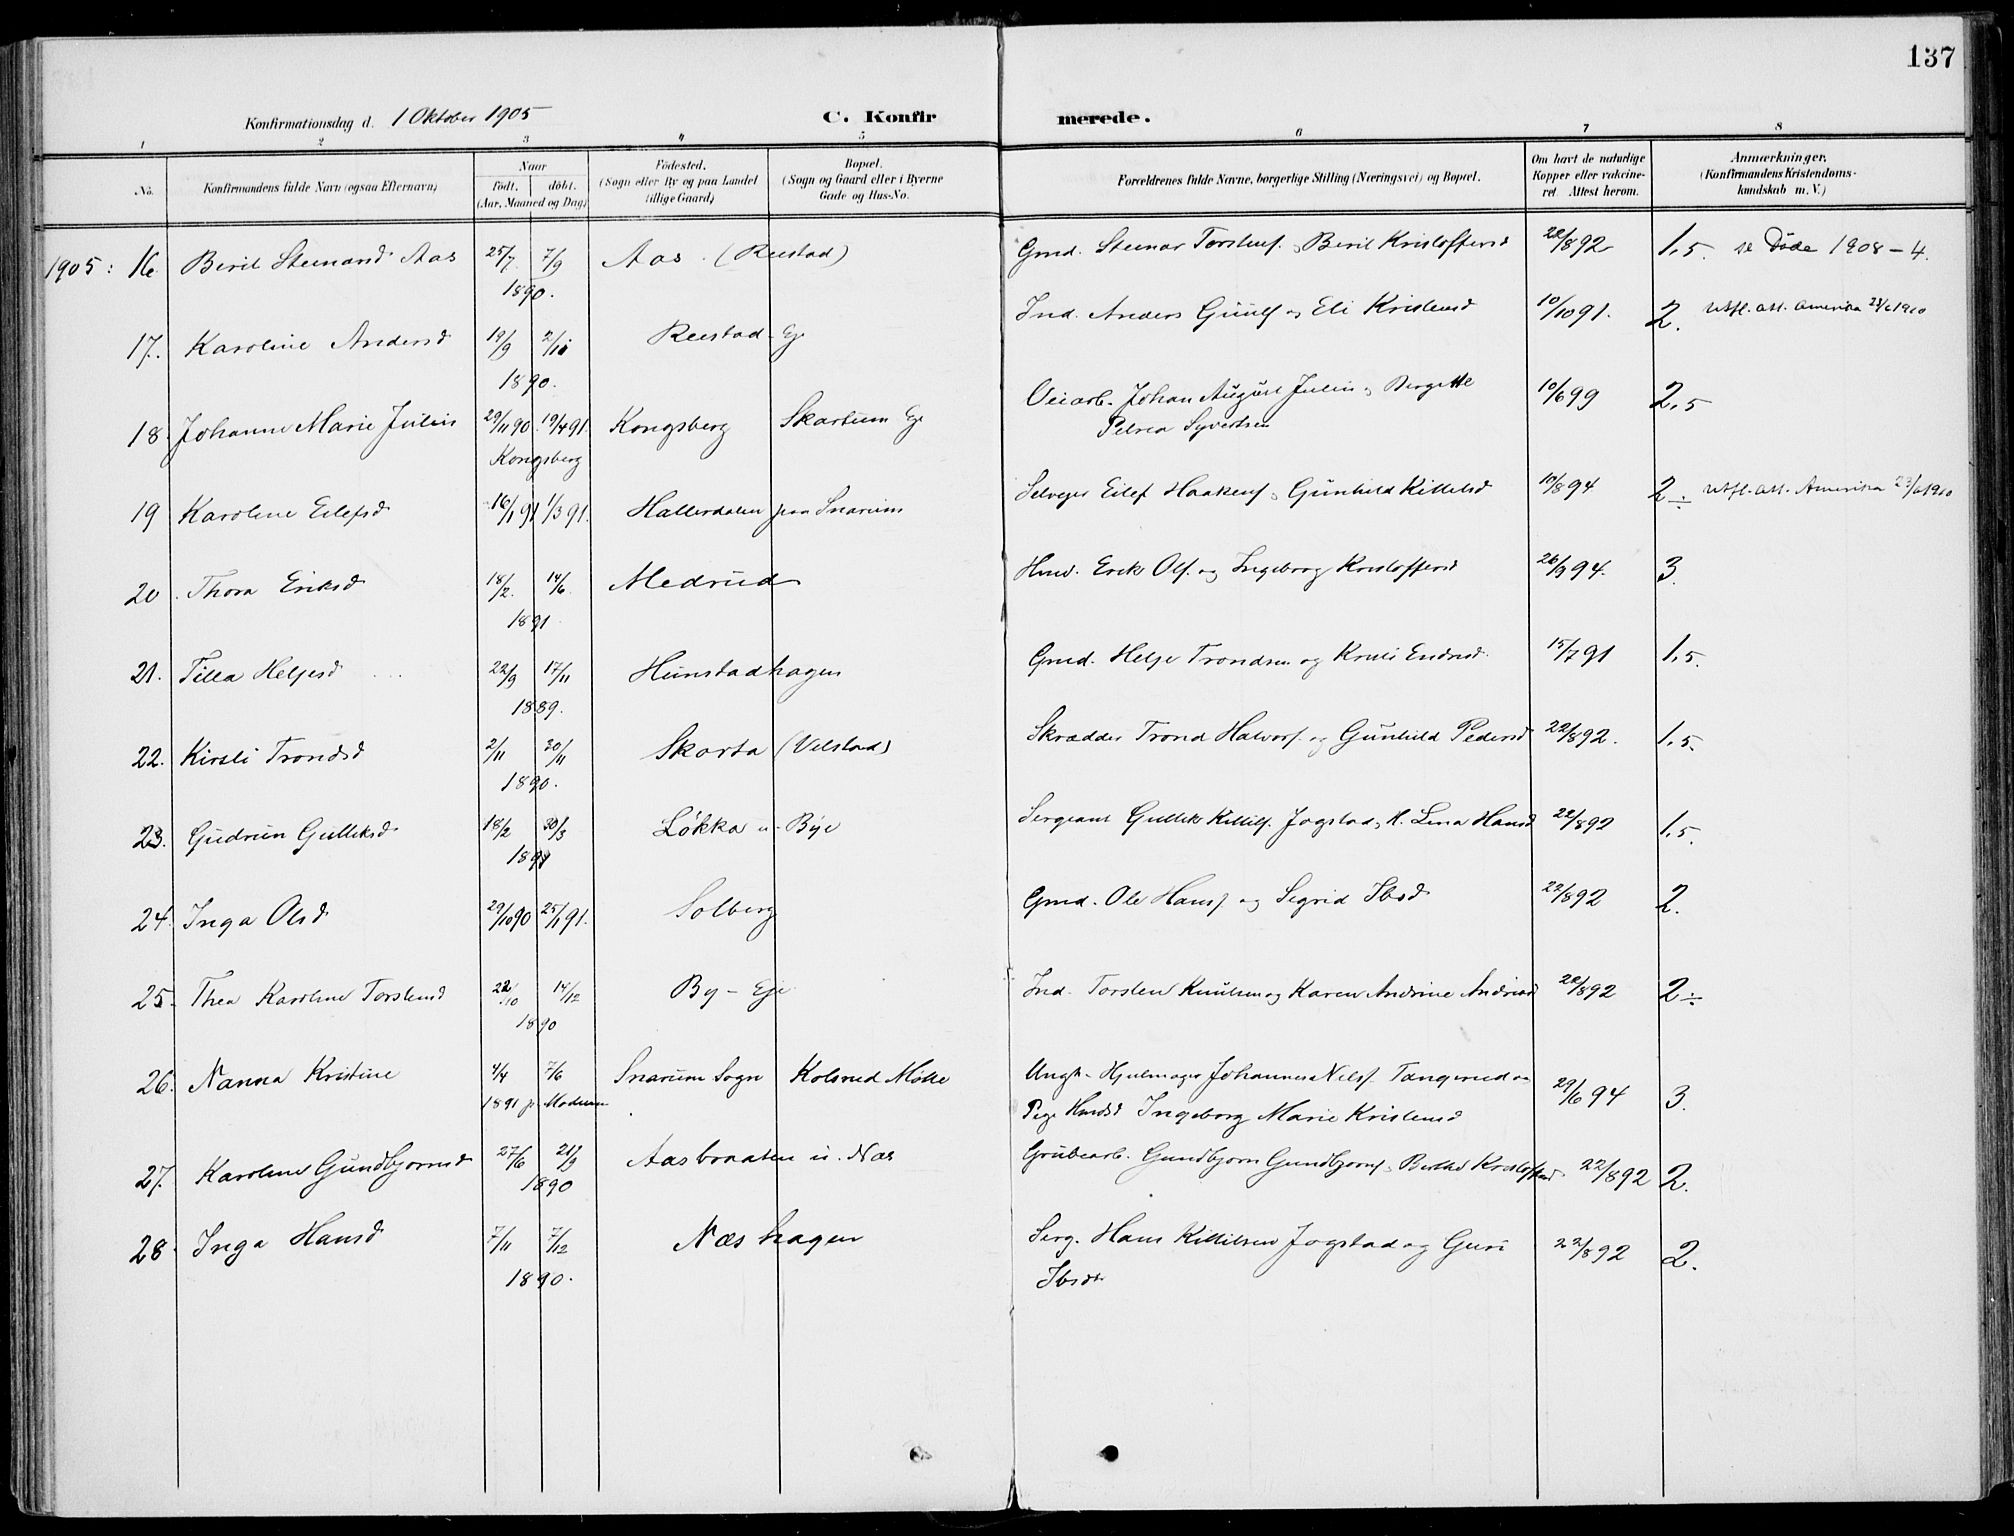 137
Konfirmationsdag d. 1 Oktober 1905
C. Konfirmerede.
1 2 3 4 5 6 7 8
No.
Konfirmandens fulde Navn (ogsaa Efternavn)
Naar
født. døbt.
(Aar, Maaned og Dag)
Fødested.
(Sogn eller By og paa Landet
tillige Gaard)
Bopæl.
(Sogn og Gaard eller i Byerne
Gade og Hus-No.
Forældrenes fulde Navne, borgerlige Stilling (Næringsvei) og Bopæl.
Om havt de naturlige
Kopper eller vakcine-
ret Attest herom.
Anmærkninger.
(Konfirmandens Kristendoms-
kundskab m. V.)
1905: 16. Berit Steinarsd. Aas 25/7 7/9 1890. Aas. (Reistad) Gmd. Steinar Torstens. Berit Kristoffersd 22/8 92 1,5 se Døde 1908-4.
17. Karoline Andersd 19/9 2/11 1890. Reistad Eje Ind. Anders Guulds og Eli Kristensd 10/10 91. 2. Utfl. att. Amerika 23/6 1910
18. Johanne Marie Julin 29/11 90. 19/4 91. Kongsberg Kongsberg Skartum Eje Veiarb. Johan August Julin, Bergitte
Petrea Syvertsen 10/6 99 2,5
19 Karoline Eilefsd 16/1 91 1/3 91. Hallerdalen paa Snarum Selveger Eilef Haakens, Gunhild Kittelsd 10/8 94 2÷ Utfl. att. Amerika 23/6 1910
20. Thora Eriksd 18/2. 14/6. 1891. Medrud Hmd. Erik Ols. og Ingeborg Kristoffersd 26/9 94. 3.
21. Tilla Heljesd 22/9 17/11 1889. Hunstadhagen Gmd. Helje Trondsen og Kristi Endresd. 15/7 91 1,5.
22. Kirsti Trondsd 2/11 30/11 1890. Skarta (Velstad) Skrædder Trond Halvors. og Gunhild Pedersd 22/8 92. 1,5.
23. Gudrun Gulliksd. 18/2 30/3 1891 Løkka u. Bye Sergeant Gullik Kittils. Jogstad, K. Lina Hansd 22/8 92 1,5.
24. Inga Olsd 29/10 90 25/1 91. Solberg Gmd. Ole Hans. og Sigrid Ibsd 22/8 92 2.
25. Thea Karoline Torstensd 22/10 14/12 1890 By - Eje Ind. Torsten Knutsen og Karen Andrine Andersd 22/8 92 2÷
26. Nanna Kristine 4/4 7/6 1891 p. Modum Snarum Sogn Kolsrud Mølle Ungk. Hjulmager Johannes Nils. Tangerud og
Pige Hmdsd Ingeborg Marie Kristensd 29/6 94 3.
27. Karoline Gundbjørnsd 27/6 21/9 1890 Aasbraaten u. Næs Grubearb. Gundbjørn Gundbjørns. Berthe Kristoffersd 22/8 92 2.
28. Inga Hansd 7/11 7/12 1890. Næshagen Serg. Hans Kittilsen Jogstad og Guri
Ibsdtr 22/8 92 2.